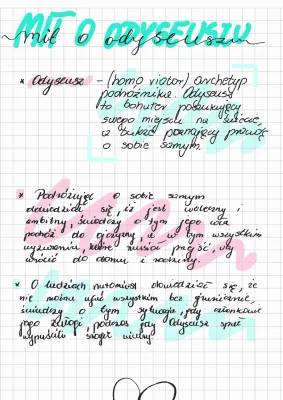 MIT O ODYSEUSZU
mit o odyseuszu
* Odyseusz - (homo viator) archetyp
podróżnika. Odyseusz
to bohater poszukujący
swego miejsca na świecie,
a także poznający prawdę
o sobie samym.
* Podróżując o sobie samym
dowiedział się, iż jest waleczny i
ambitny, świadczy o tym jego
podróż do ojczyzny, a w tym wszystkim
wyzwaniom, które musiał przejść, aby
wrócić do domu i rodziny.
* O ludziach natomiast dowiedział się, że
nie można ufać wszystkim bez granicznie,
świadczy o tym sytuacja, gdy członkowie
jego załogi, podczas gdy Odyseusz spał
wypuścili wiatry